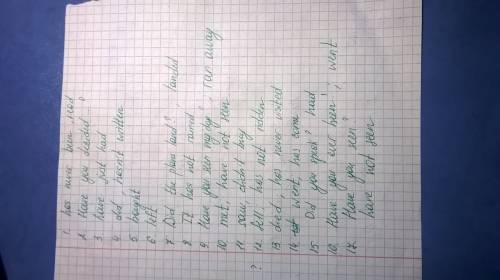 1. has never been read
2. Have you decided?
3. have just had
4. did, hasn't written
5. bought
6. left
7. Did the plane land?, landed
8. It has not rained
9. Have you seen my dog?, ran away
10. met, have not seen
11. saw, didn't buy
12. fell, has not ridden
13. died, has never visited
14. went, has
15. Did you speak? had
16. Have you ever been?, went
17. Have you seen?
have not seen
?